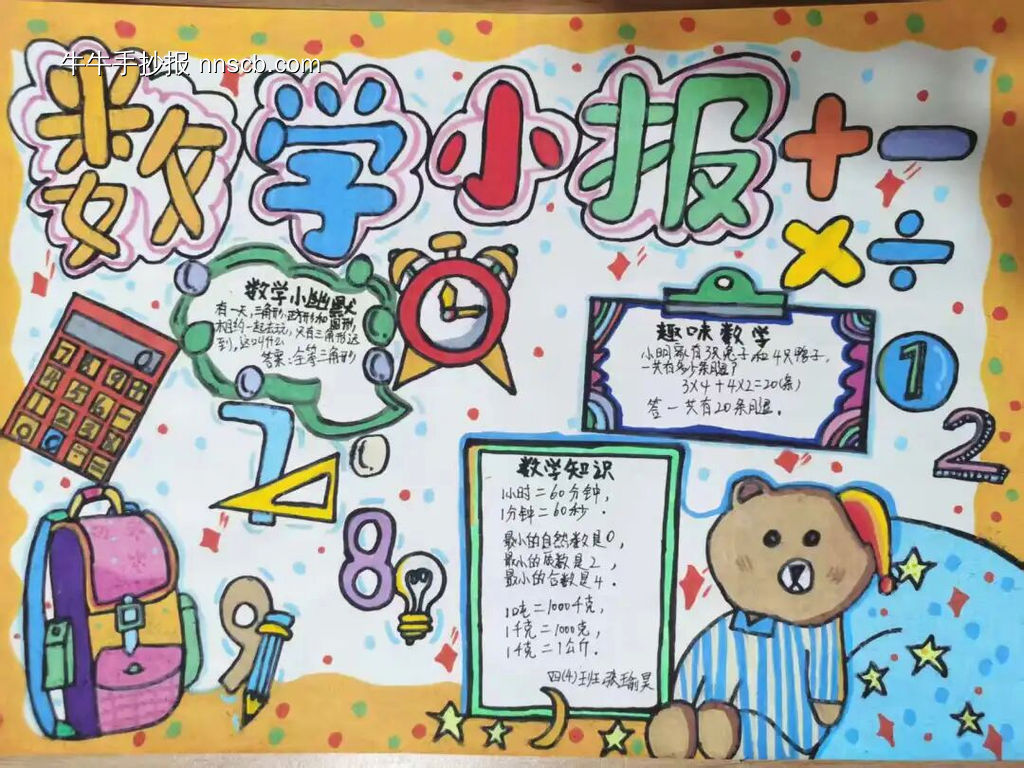 牛牛手抄报 nnscb.com
数学小报
+ -
× ÷
数学小幽默
有一天，三角形、正方形和圆形，
相约一起去玩，只有三角形迟
到，这叫什么
答案：全等三角形
趣味数学
小明家有3只兔子和4只鸭子，
一共有多少条腿？
3×4+4×2=20(条)
答一共有20条腿。
1
2
7
8
9
数学知识
1小时=60分钟，
1分钟=60秒．
最小的自然数是0，
最小的质数是2，
最小的合数是4．
10吨=1000千克，
1千克=1000克，
1千克=1公斤．
四(4)班